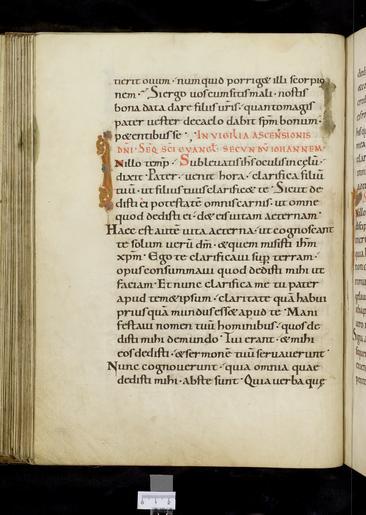 tierit ovum · numquid porriget illi scorpio
nem · Si ergo vos cum sitis mali · nostis
bona data dare filiis vr̄is · quanto magis
pater vester de caelo dabit sp̄m bonum ·
petentibus se · IN VIGILIA ASCENSIONIS
DNI · SEQ SCI EVANGL · SECUNDV IOHANNEM
Nillo temp̄ · Sublevatis ih̄s oculis in cęlū ·
dixit · Pater · venit hora · clarifica filiū
tuū · ut filius tuus clarificet te · Sicut de
disti ei potestatē omnis carnis · ut omne
quod dedisti ei · det eis vitam aeternam ·
Haec est autē vita aeterna · ut cognoscant
te solum verū dm̄ · et quem misisti ih̄m
xp̄m · Ego te clarificavi sup̱ terram ·
opus consummavi quod dedisti mihi ut
faciam · Et nunc clarifica me tu pater
apud temetipsum · claritate quā habui
prius quā mundus esset apud te · Mani
festavi nomen tuū hominibus · quos de
disti mihi de mundo · Tui erant · et mihi
eos dedisti · et sermonē tuū servaverunt
Nunc cognoverunt · quia omnia quae
dedisti mihi · abs te sunt · Quia verba quę